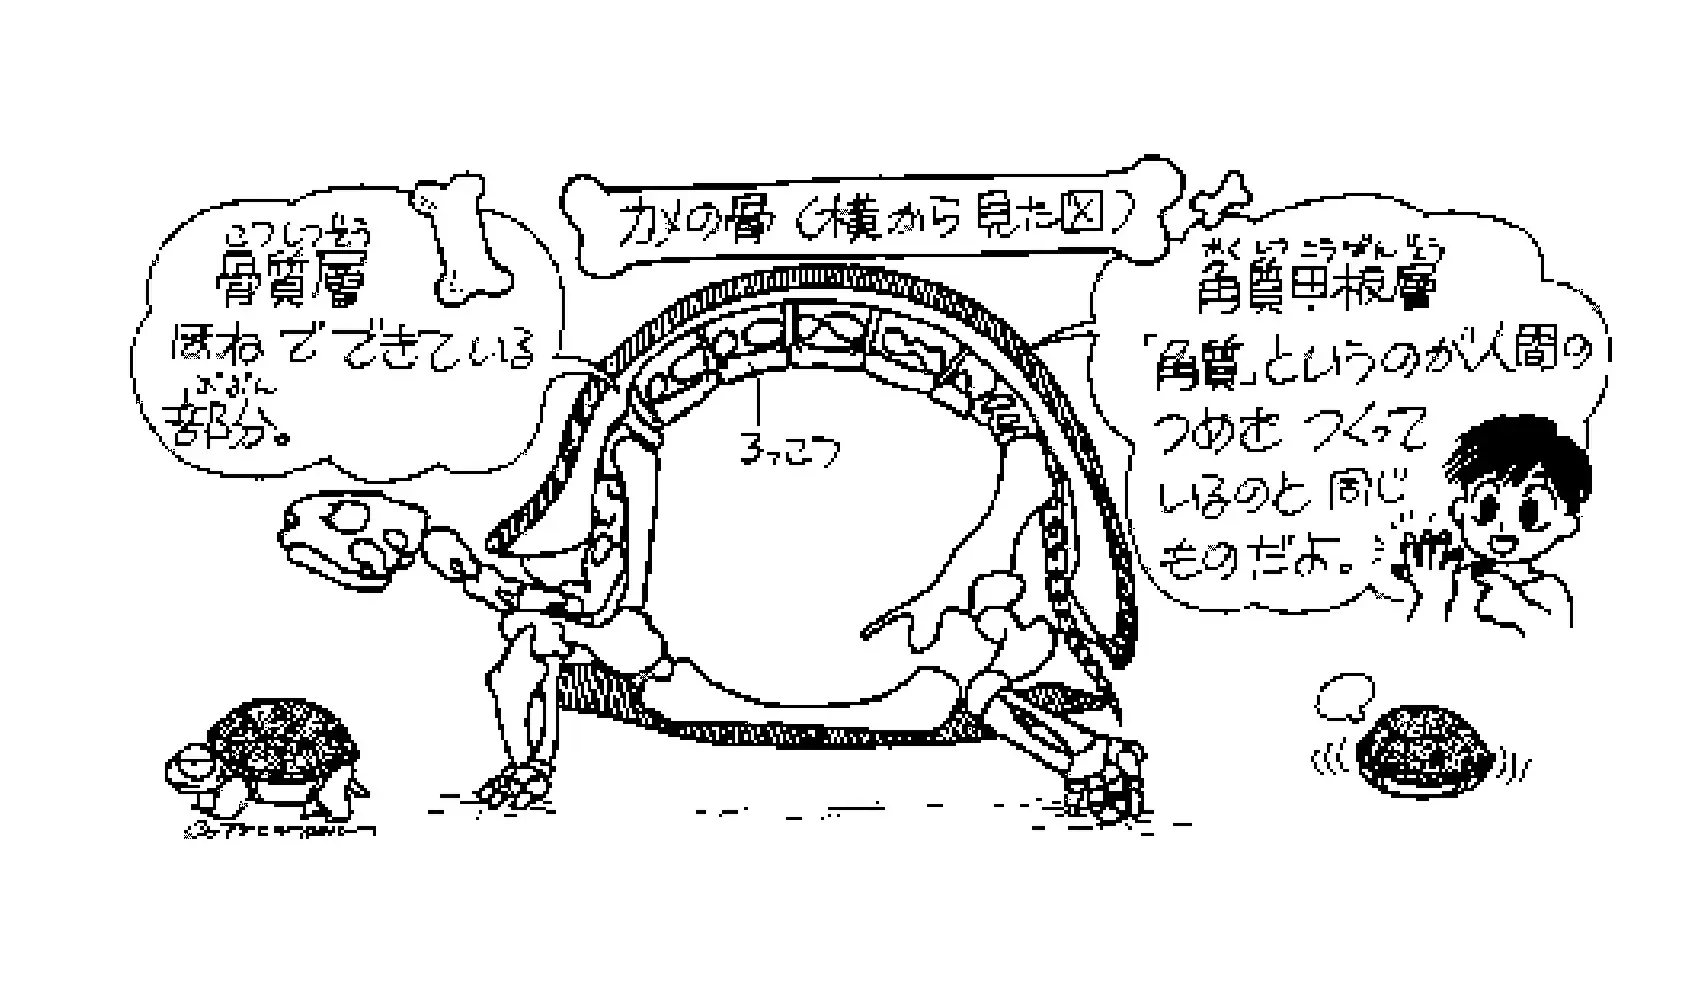 カメの骨(横から見た図)
こつしつそう
骨質層
ほねでできている
ぶぶん
部分。
かくしつこうばんそう
角質甲板層
「角質」というのが人間の
つめをつくって
いるのと同じ
ものだよ。
ろっこつ